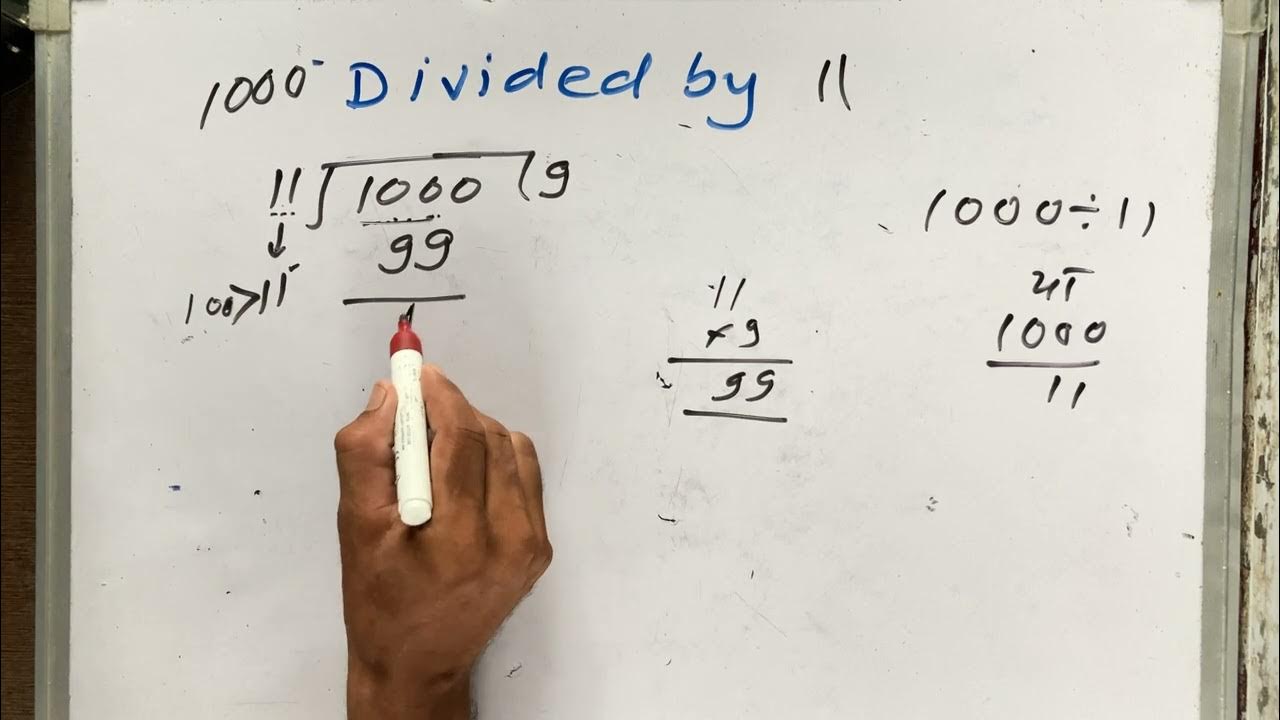 1000 Divided by 11
11 1000 9
99
100>11
11
×9
99
1000÷11
या
1000
11